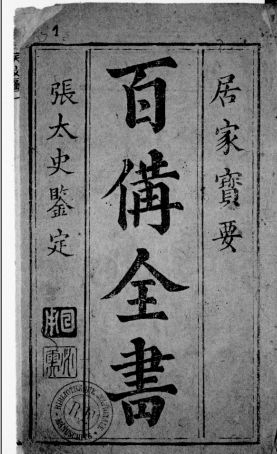 居家寳要
百備全書
張太史鑒定
1